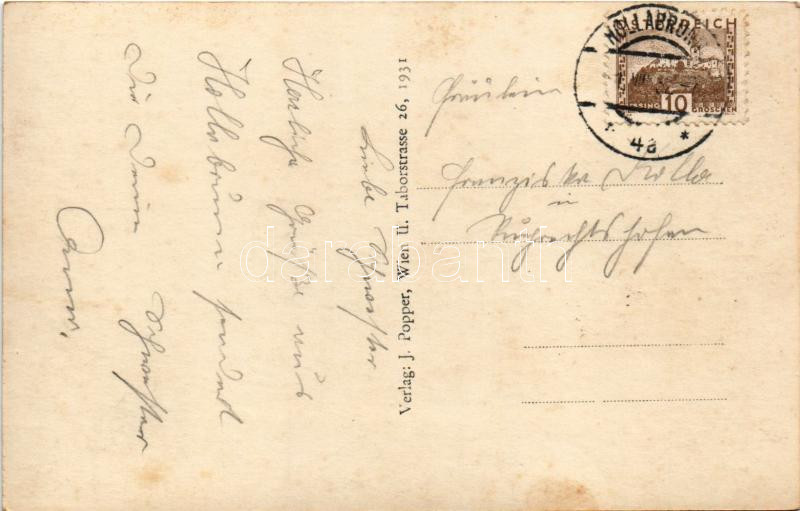 Liebe Schwester
Herzliche Grüße aus
Hollabrunn sendet
Dir Deine
Schwester
Anna.
Verlag: J. Popper, Wien II. Taborstrasse 26, 1931
HOLLABRUNN
4a *
ÖSTERREICH
10
GÜSSING
GROSCHEN
Fräulein
Franziska Kolla
in
Ruprechtshofen
darabanth